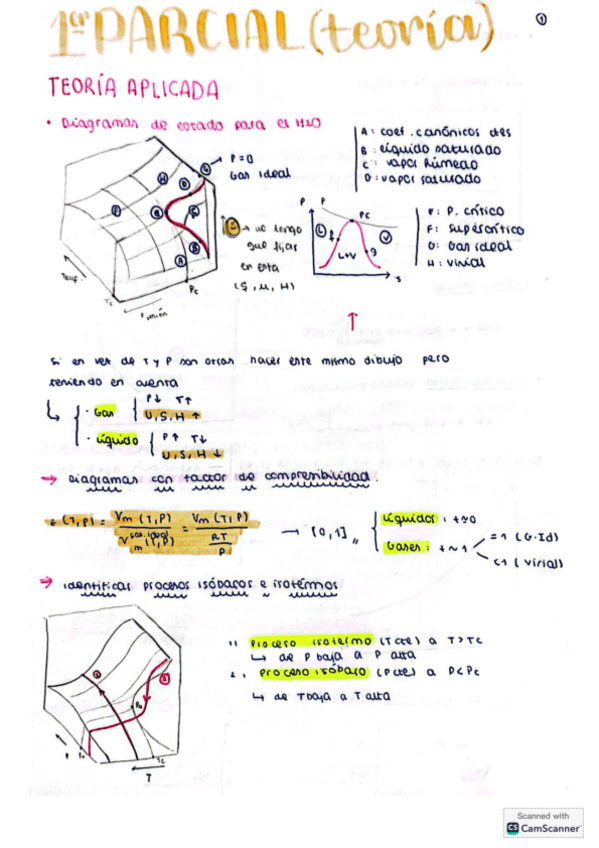 1er PARCIAL (teoría)
1
TEORÍA APLICADA
• Diagramas de estado para el H2O
P=0
Gas ideal
A: coef. canónicos ctes
B: líquido saturado
C: vapor húmedo
D: vapor saturado
E: P. crítico
F: supercrítico
G: Gas ideal
H: virial
→ me tengo
que fijar
en esta
(S, u, H)
P
PC
L
V
L+V
S
Temp.
Tc
Presión
Pc
↑
Si en vez de T y P son otras hacer este mismo dibujo pero
teniendo en cuenta
↳ { · Gas { P↓ T↑
U, S, H ↑
· Líquido { P↑ T↓
U, S, H ↓
→ Diagramas con factor de compresibilidad.
z (T,P) = Vm (T,P) / Vm gas ideal (T,P) = Vm (T,P) / RT/P → [0,1] „ { Líquidos: z≈0
Gases: z ~ 1 =1 (G.Id)
<1 (Virial)
→ identificar procesos isóbaros e isotérmos
1. Proceso isotermo (T cte) a T>Tc
↳ de P baja a P alta
2. Proceso isóbaro (P cte) a P<Pc
↳ de T baja a T alta
1
2
P
Tc
T